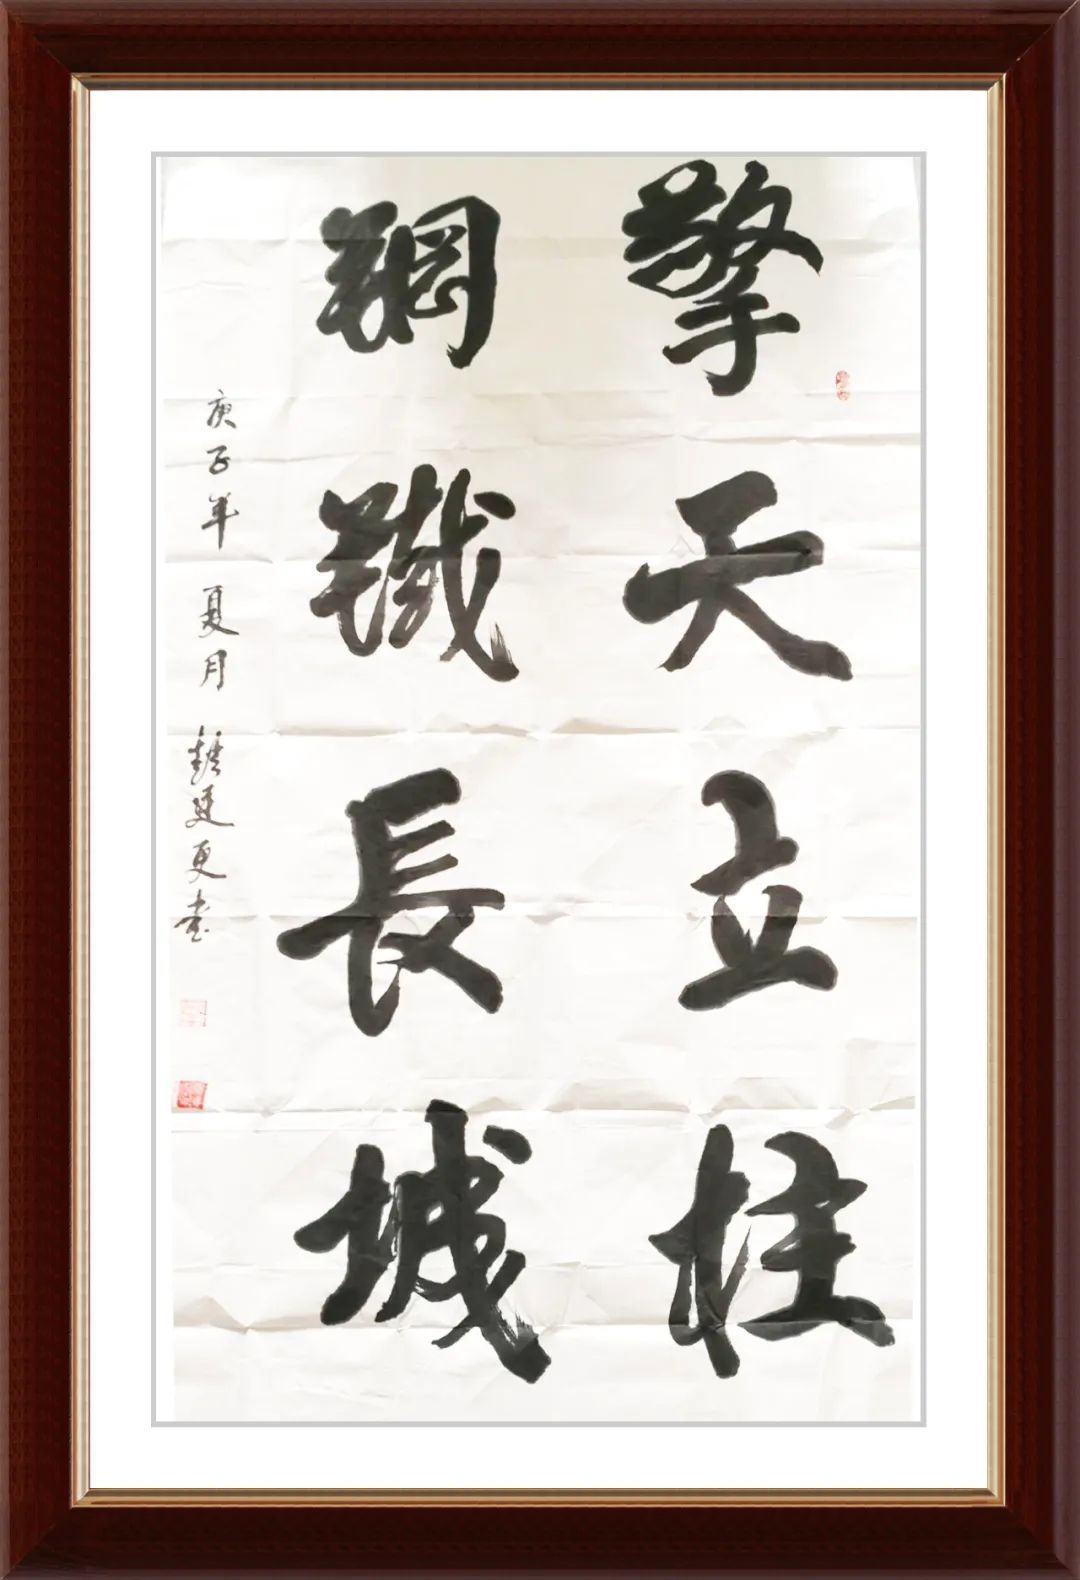 擎天立柱
鋼鐵長城
庚子年 夏月 廷更書